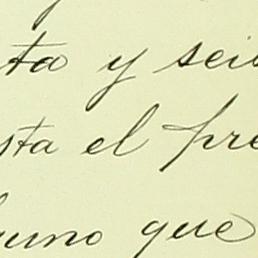 ta y seis
sta el pre
guno que